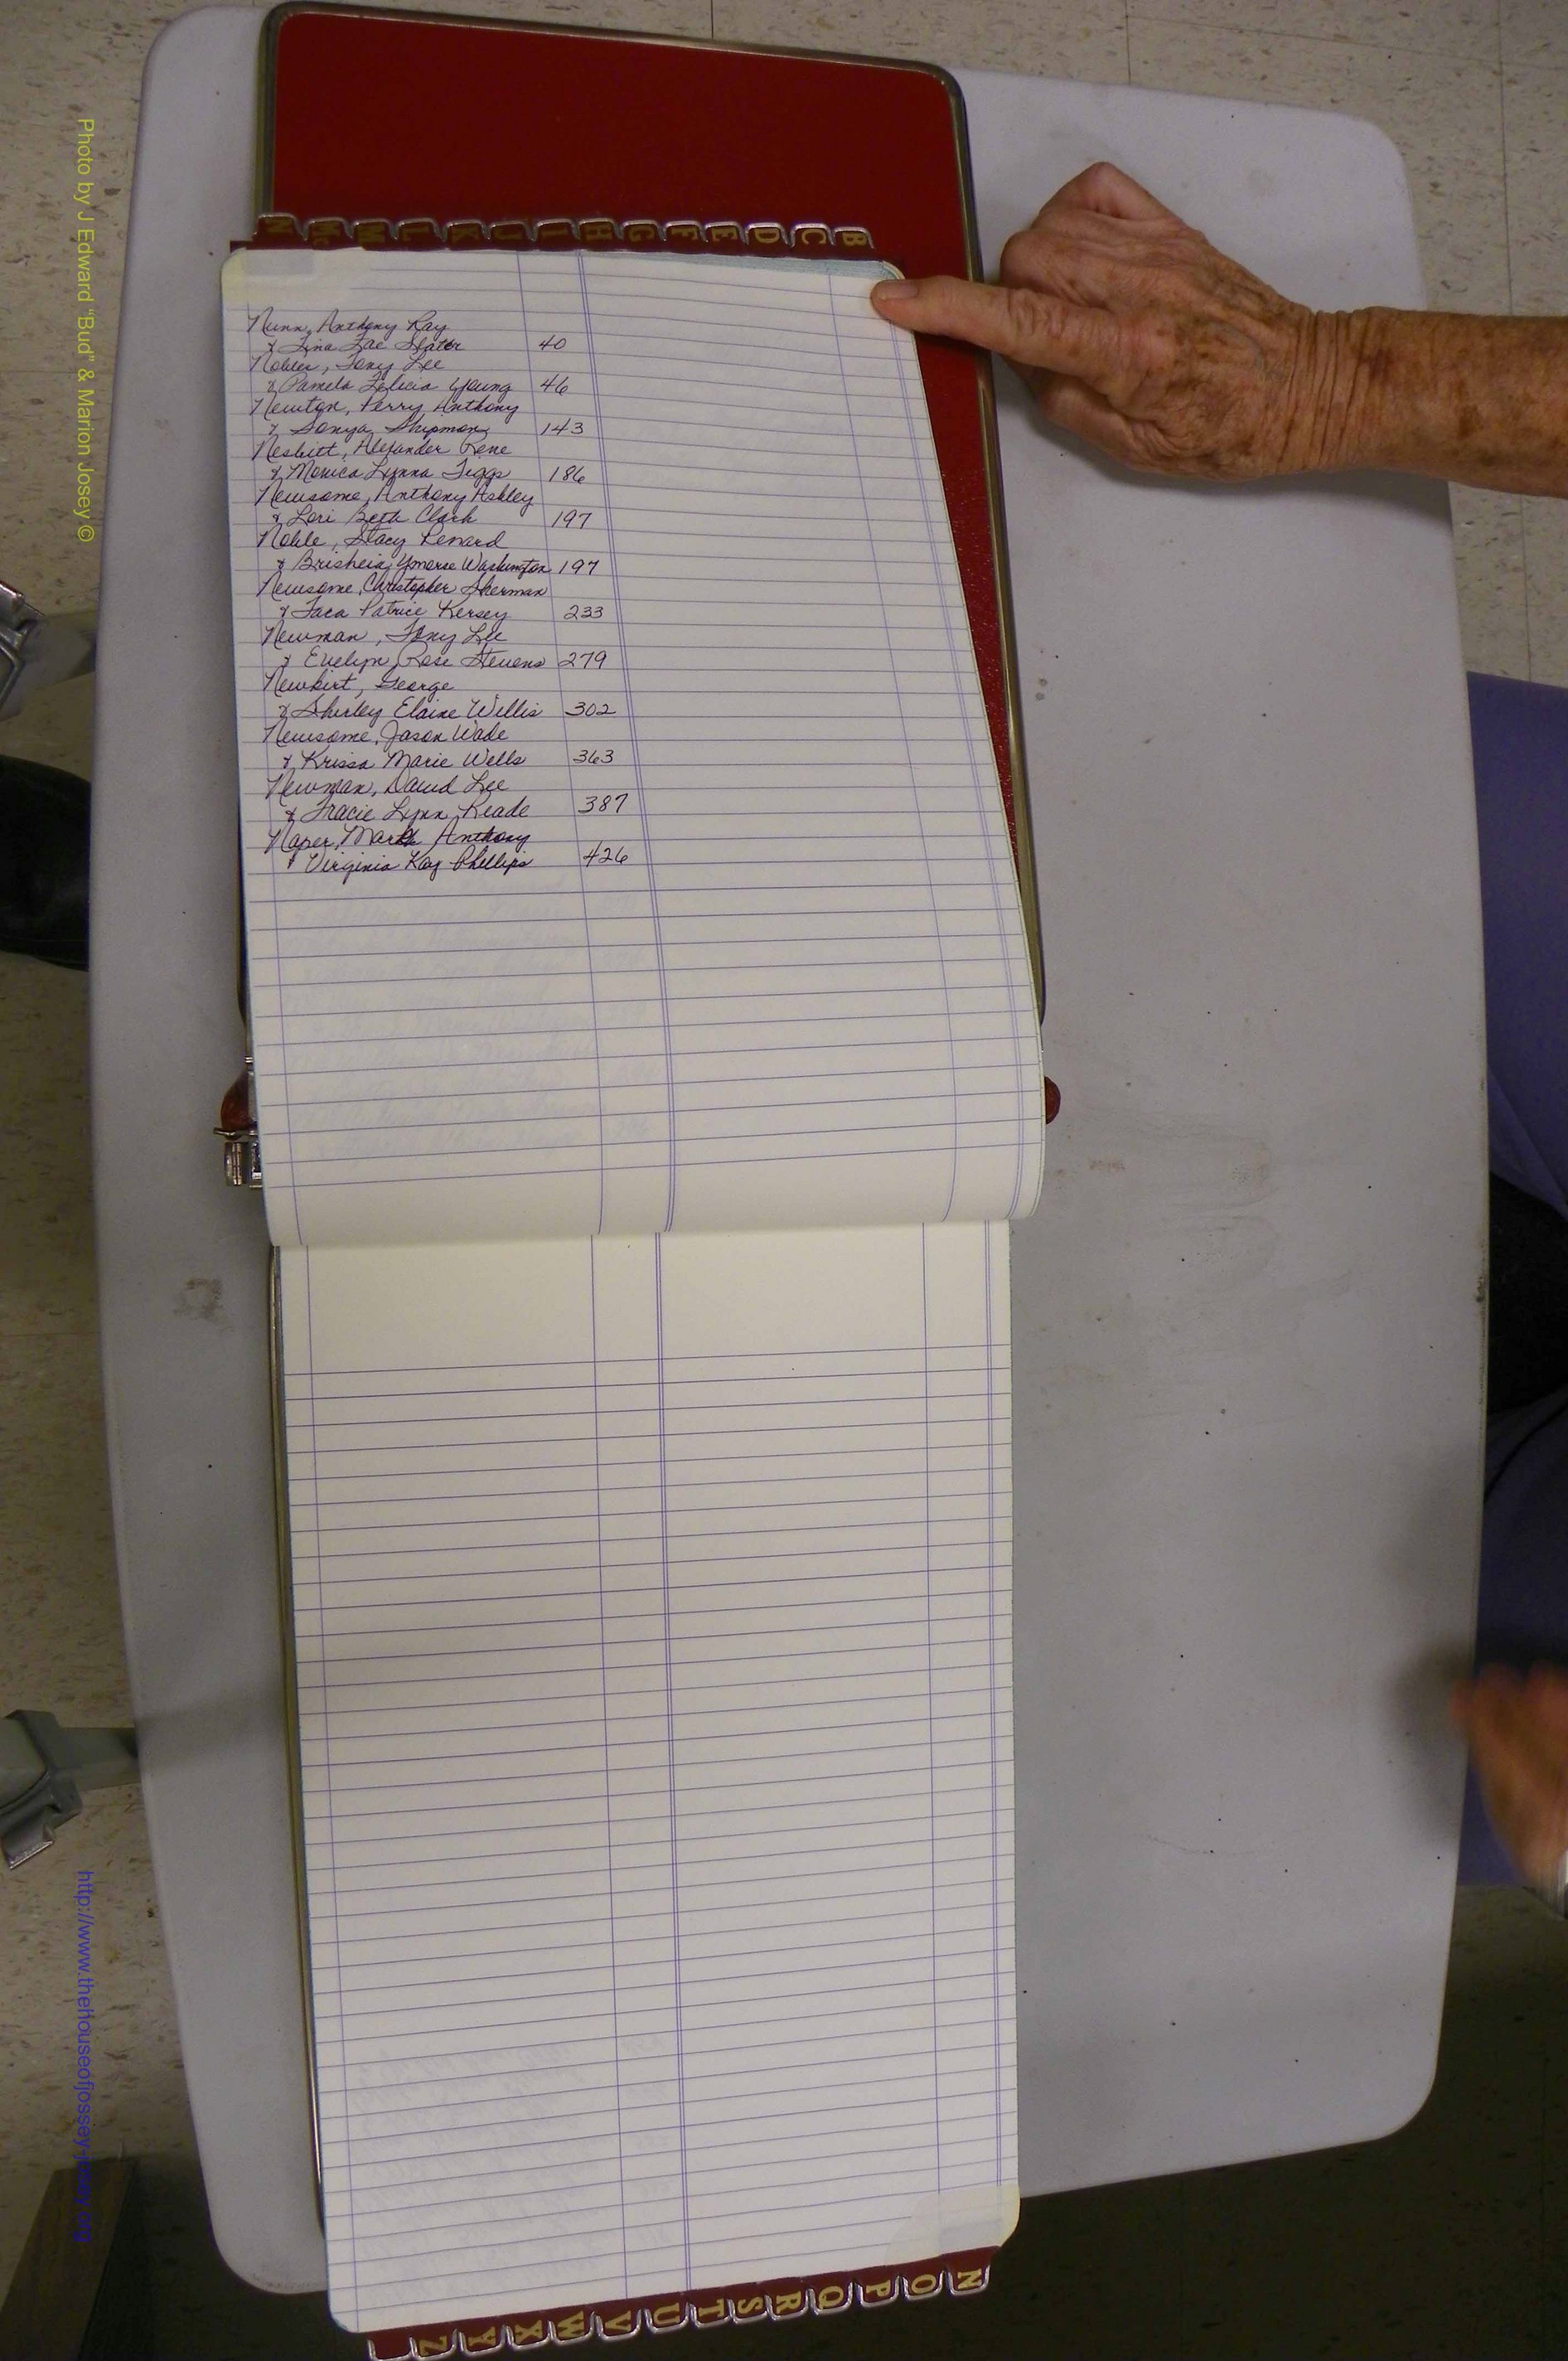 Nunn, Anthony Ray
& Tina Fae Slater 40
Nobles, Tony Lee
& Pamela Felicia Young 46
Newton, Perry Anthony
& Sonya Shipman 143
Nesbitt, Alexander Rene
& Monica Lynna Tiggs 186
Newsome, Anthony Ashley
& Lori Beth Clark 197
Noble, Stacy Renard
& Brisheia Ymorse Washington 197
Newsome, Christopher Sherman
& Taca Patrice Kersey 233
Newman, Tony Lee
& Evelyn Rose Stevens 279
Newkirt, George
& Shirley Elaine Willis 302
Newsome, Jason Wade
& Krissa Marie Wells 363
Newman, David Lee
& Tracie Lynn Reade 387
Naper, Mark Anthony
& Virginia Kay Phillips 426
B C D E F G H I J K L M Mc N
N O P Q R S T U V W X Y Z
Photo by J Edward "Bud" & Marion Josey ©
http://www.thehouseofjossey-josey.org